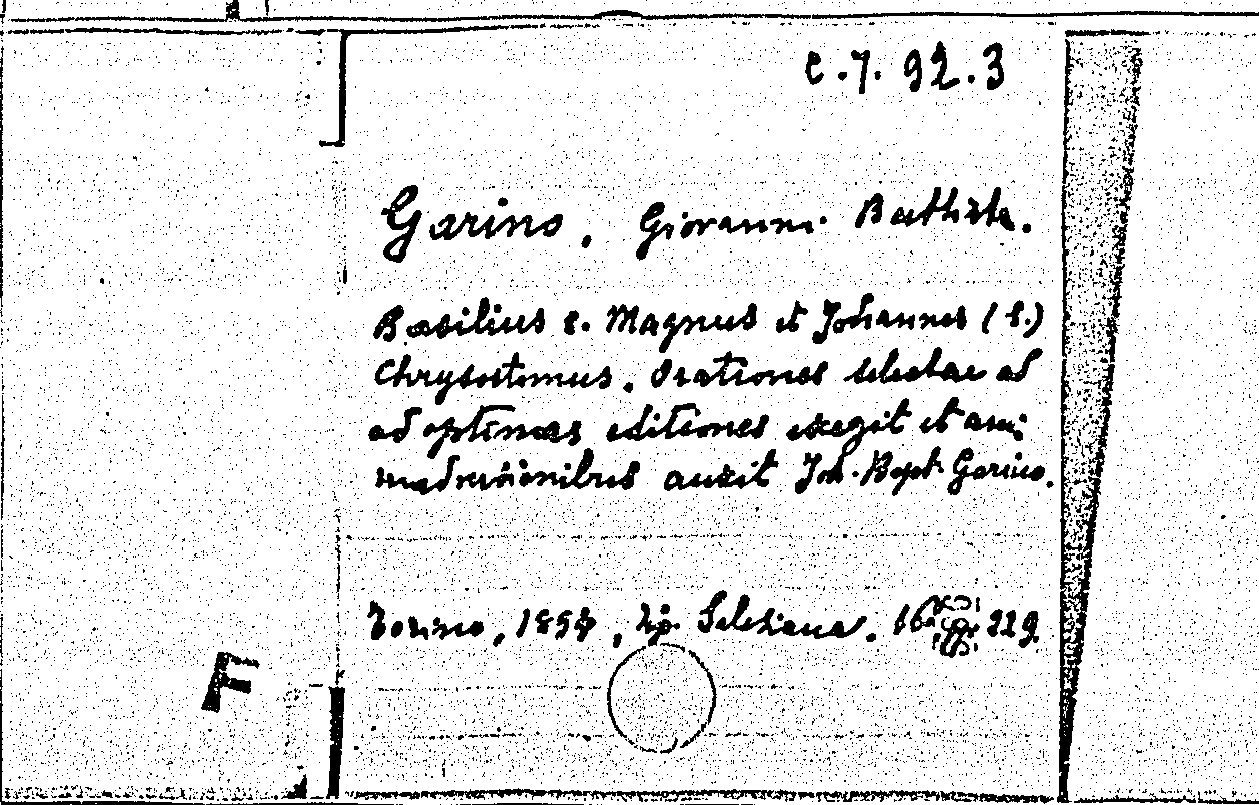 C.7.92.3
Garino, Giovanni Battista.
Basilius s. Magnus et Johannes (s.)
Chrysostomus. Orationes selectae ad
ad optimas editiones exegit et ani-
madversionibus auxit Joh. Bapt. Garino.
Torino, , Tip. Salesiana. 16° pp. 229.
F